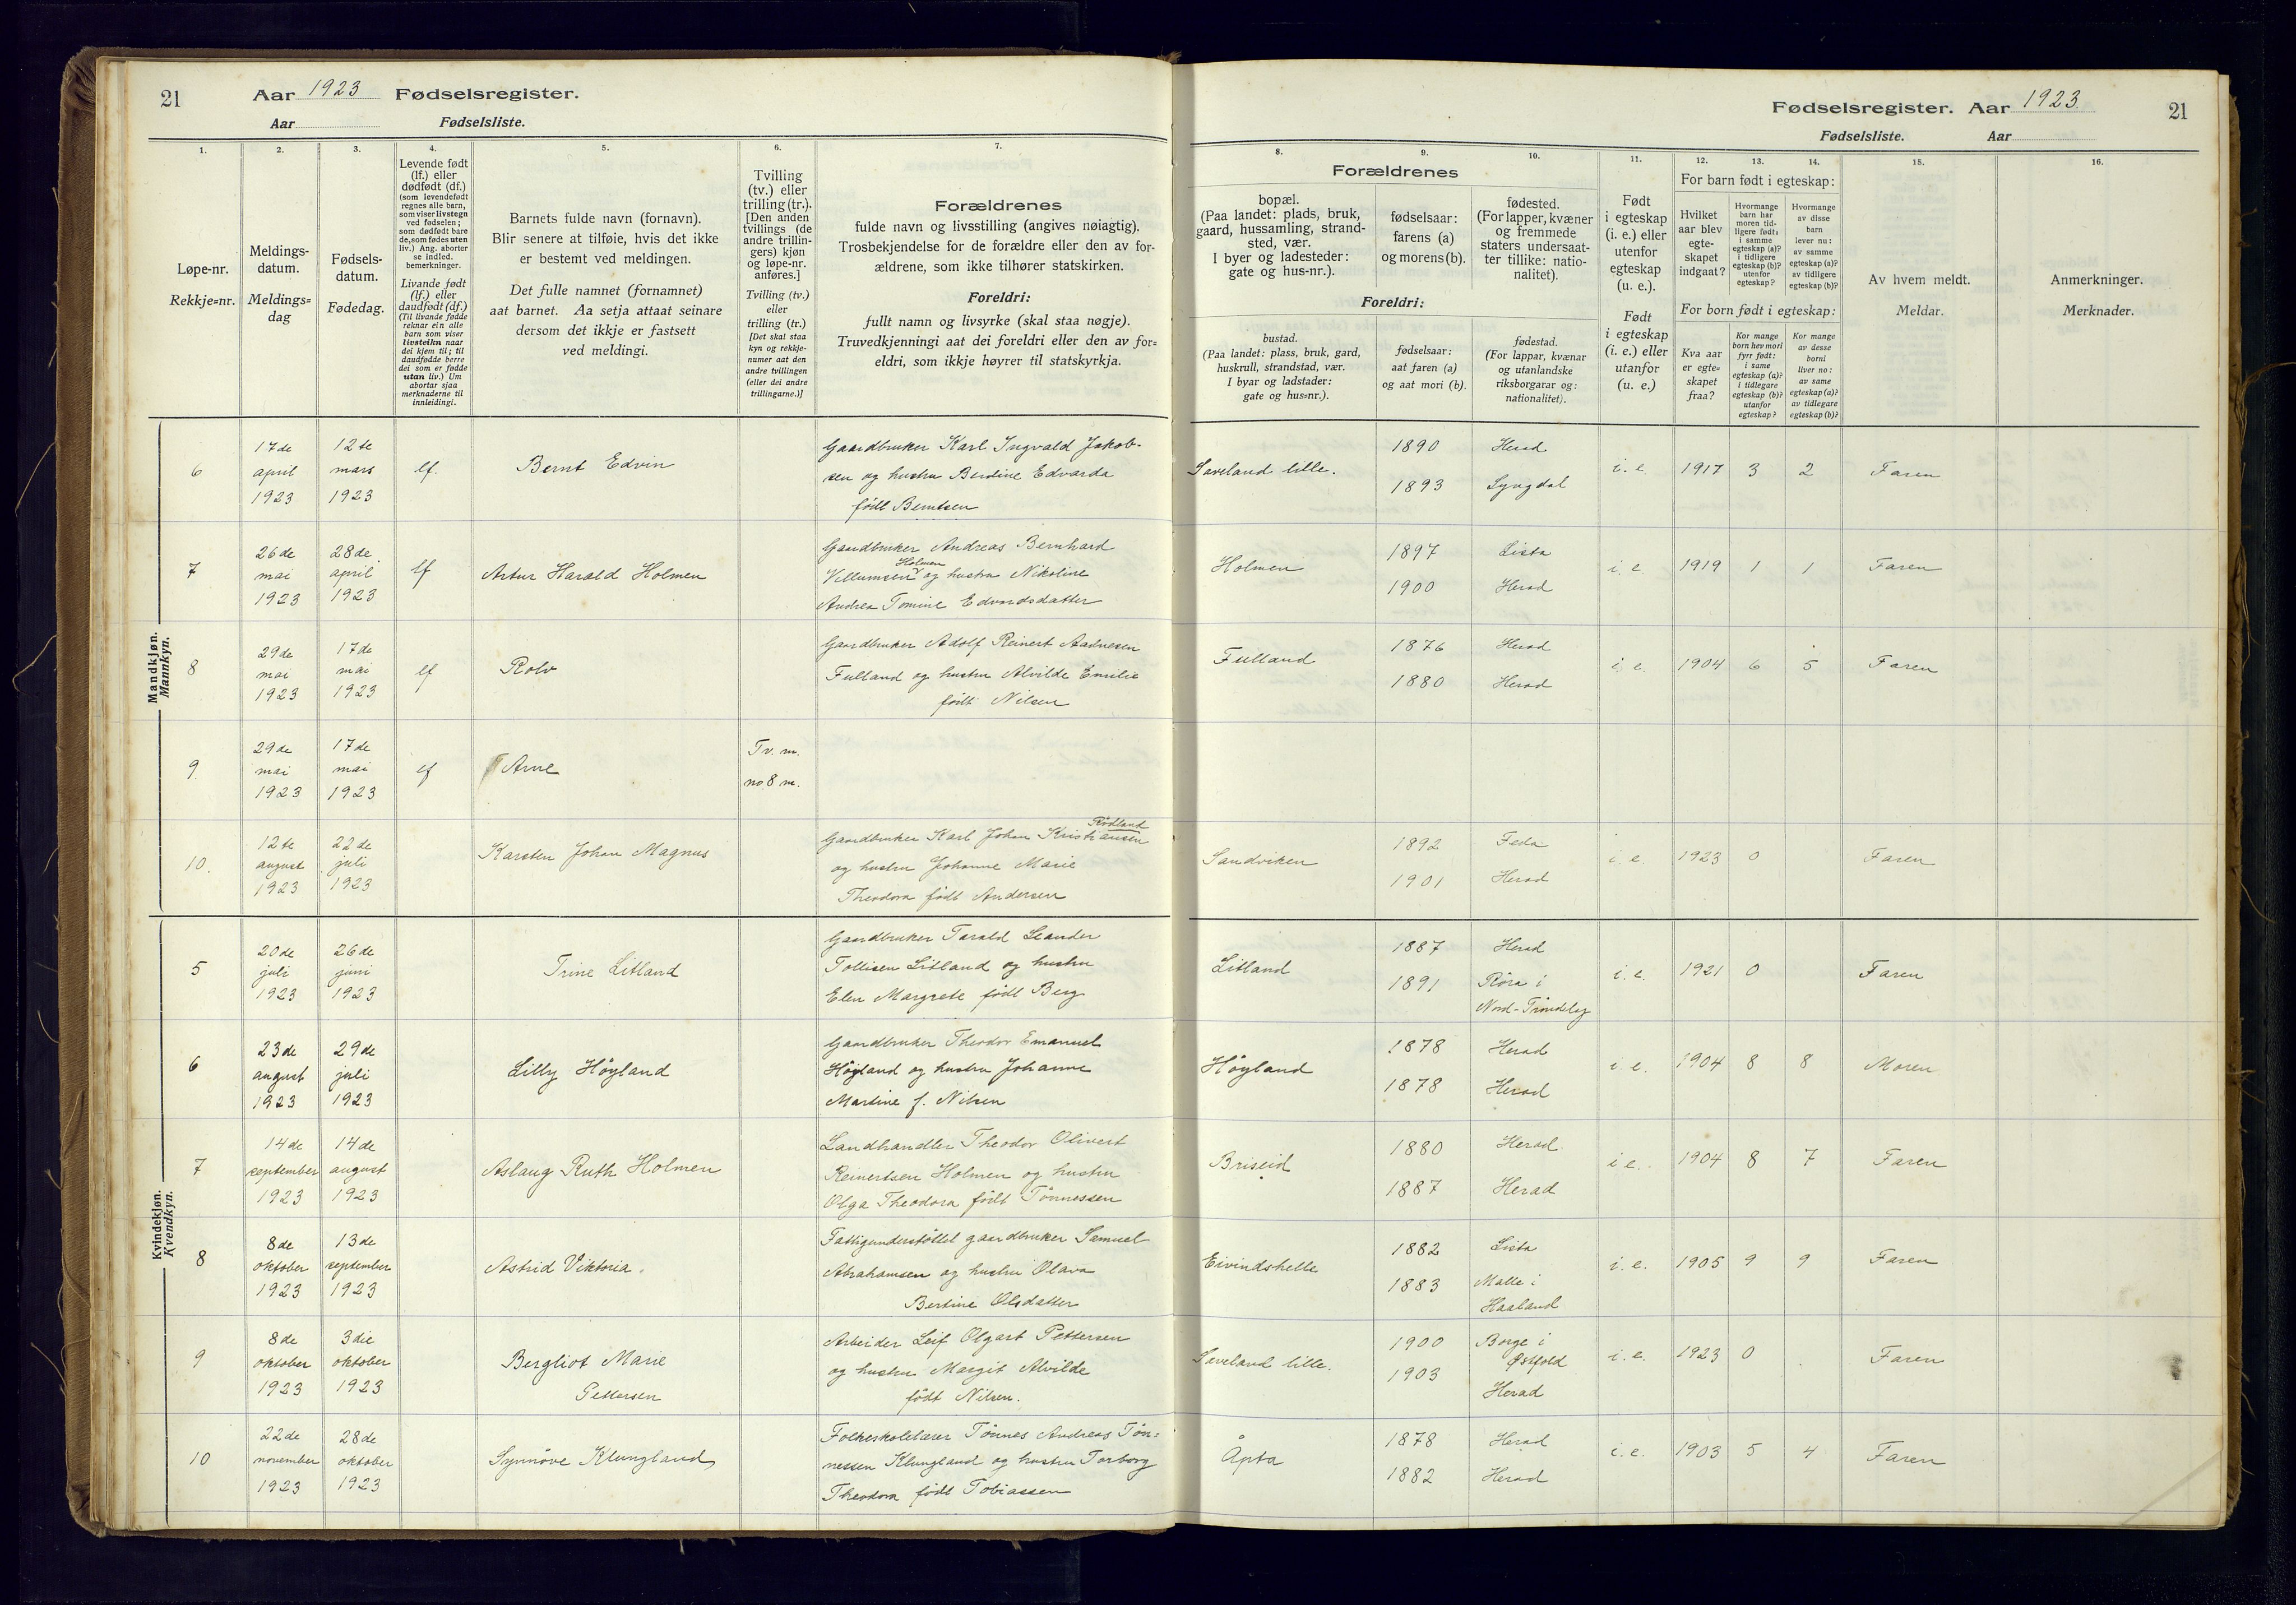 21
Aar 1923 Fødselsregister.
Aar Fødselsliste.
1.
Løpe-nr.
Rekkje=nr.
2.
Meldings-
datum.
Meldings=
dag
3.
Fødsels-
datum.
Fødedag.
4.
Levende født
(lf.) eller
dødfødt (df.)
(som levendefødt
regnes alle barn,
som viser livstegn
ved fødselen;
som dødfødt bare
de, som fødes uten
liv.) Ang. aborter
se indled.
bemerkninger.
Livande født
(lf.) eller
daudfødt (df.)
(Til livande fødde
reknar ein alle
barn som viser
livsteikn naar
dei kjem til; til
daudfødde berre
dei som er fødde
utan liv.) Um
abortar sjaa
merknaderne til
innleidingi.
5.
Barnets fulde navn (fornavn).
Blir senere at tilføie, hvis det ikke
er bestemt ved meldingen.
Det fulle namnet (fornamnet)
aat barnet. Aa setja attaat seinare
dersom det ikkje er fastsett
ved meldingi.
6.
Tvilling
(tv.) eller
trilling (tr.).
[Den anden
tvillings (de
andre trillin-
gers) kjøn
og løpe-nr.
anføres.]
Tvilling (tv.)
eller
trilling (tr.)
[Det skal staa
kyn og rekkje-
numer aat den
andre tvillingen
(eller dei andre
trillingarne.)]
7.
Forældrenes
fulde navn og livsstilling (angives nøiagtig).
Trosbekjendelse for de forældre eller den av for-
ældrene, som ikke tilhører statskirken.
Foreldri:
fullt namn og livsyrke (skal staa nøgje).
Truvedkjenningi aat dei foreldri eller den av for=
eldri, som ikkje høyrer til statskyrkja.
Mandkjøn.
Mannkyn.
6
17de
april
1923
12te
mars
1923
lf.
Bernt Edvin
Gaardbruker Karl Ingvald Jakob-
sen og hustru Berdine Edvarda
født Berntsen
7
26de
mai
1923
28de
april
1923
lf
Artur Harald Holmen
Gaardbruker Andreas Bernhard
Holmen
Villumsen og hustru Nikoline
Andrea Tomine Edvardsdatter
8
29de
mai
1923
17de
mai
1923
lf
Rolv
Gaardbruker Adolf Reinert Aadnesen
Fulland og hustru Alvilde Emilie
født Nilsen
9.
29de
mai
1923
17de
mai
1923
lf
Arne
Tv. m.
no. 8 m.
10.
12te
august
1923
22de
juli
1923
Karsten Johan Magnus
Rødland
Gaardbruker Karl Johan Kristiansen
og hustru Johanne Marie
Theodora født Andersen
Kvindekjøn.
Kvendkyn.
5
20de
juli
1923
26de
juni
1923
Trine Litland
Gaardbruker Tarald Leander
Tollisen Litland og hustru
Elen Margrete født Berg
6
23de
august
1923
29de
juli
1923
Lilly Høyland
Gaardbruker Theodor Emanuel
Høyland og hustru Johanne
Martine f. Nilsen
7
14de
september
1923
14de
august
1923
Aslaug Ruth Holmen
Landhandler Theodor Olivert
Reinertsen Holmen og hustru
Olga Theodora født Tønnessen
8
8de
oktober
1923
13de
september
1923
Astrid Viktoria.
Fattigunderstøttet gaardbruker Samuel
Abrahamsen og hustru Olava
Bertine Olsdatter
9
8de
oktober
1923
3die
oktober
1923
Bergliot Marie
Pettersen
Arbeider Leif Olgart Pettersen
og hustru Margit Alvilde
født Nilsen.
10
22de
november
1923
28de
oktober
1923
Synnöve Klungland
Folkeskolelærer Tønnes Andreas Tøn=
nessen Klungland og hustru Torborg
Theodora født Tobiassen
Fødselsregister. Aar 1923.
21
Fødselsliste. Aar
Forældrenes
8.
bopæl.
(Paa landet: plads, bruk,
gaard, hussamling, strand-
sted, vær.
I byer og ladesteder:
gate og hus-nr.).
9.
fødselsaar:
farens (a)
og morens (b).
10.
fødested.
(For lapper, kvæner
og fremmede
staters undersaat-
ter tillike: natio-
nalitet).
Foreldri:
bustad.
(Paa landet: plass, bruk, gard,
huskrull, strandstad, vær.
I byar og ladstader:
gate og hus=nr.).
fødselsaar:
aat faren (a)
og aat mori (b).
fødestad.
(For lappar, kvænar
og utanlandske
riksborgarar og:
nationalitet).
11.
Født
i egteskap
(i. e.) eller
utenfor
egteskap
(u. e.).
Født
i egteskap
(i. e.) eller
utanfor
(u. e.)
12. 13. 14.
For barn født i egteskap:
Hvilket
aar blev
egte-
skapet
indgaat?
Hvormange
barn har
moren tid-
ligere født:
i samme
egteskap (a)?
i tidligere
egteskap (b)?
utenfor
egteskap?
Hvormange
av disse
barn
lever nu:
av samme
egteskap (a)?
av tidligere
egteskap (b)?
For born født i egteskap:
Kva aar
er egte=
skapet
fraa?
Kor mange
born hev mori
fyrr født:
i same
egteskap (a)?
i tidlegare
egteskap (b)?
utanfor
egteskap?
Kor mange
av desse
borni
liver no:
av same
egteskap (a)?
av tidlegare
egteskap (b)?
15.
Av hvem meldt.
Meldar.
16.
Anmerkninger.
Merknader.
Saveland lille.
1890
1893
Herad
Lyngdal
i. e. 1917 3 2 Faren
Holmen
1897
1900
Lista
Herad
i. e. 1919 1 1 Faren
Fulland
1876
1880
Herad
Herad
i. e. 1904 6 5 Faren
Sandviken
1892
1901
Feda
Herad
i. e. 1923 0 Faren
Litland
1887
1891
Herad
Röra i
Nord-Tröndelag
i. e. 1921 0 Faren
Höyland
1878
1878
Herad
Herad
i. e. 1904 8 8 Moren
Briseid
1880
1887
Herad
Herad
i e. 1904 8 7 Faren
Eivindshelle
1882
1883
Lista
Malle i
Haaland
i. e. 1905 9 9 Faren
Saveland lille.
1900
1903
Borge i
Østfold
Herad
i. e. 1923 0 Faren
Åpta
1878
1882
Herad
Herad
i. e. 1903 5 4 Faren